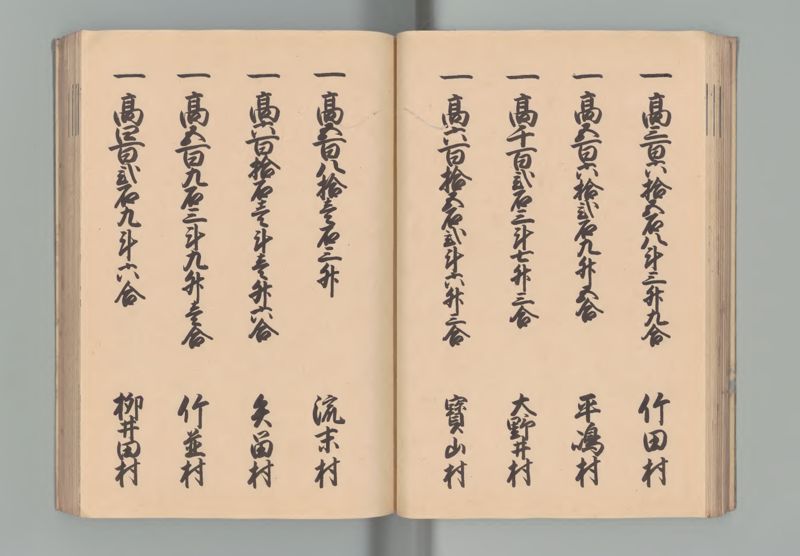 一 高三百六拾五石八斗三升九合 竹田村
一 高五百六拾弐石九升五合 平嶋村
一 高千百弐石三斗七升三合 大野井村
一 高六百拾五石弐斗六升三合 寳山村
一 高五百八拾壱石三升 流末村
一 高六百拾石壱斗壱升六合 矢留村
一 高五百九石三斗九升壱合 竹並村
一 高四百弐石九斗六合 柳井田村